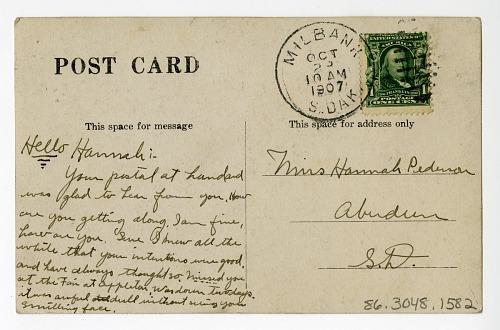 POST CARD
MILBANK
OCT
23
10 AM
1907
S. DAK.
UNITED STATES OF AMERICA
POSTAGE
ONE CENT
This space for message
This space for address only
Hello Hannah:-
Your postal at hand and
was glad to hear from you. How
are you getting along. I am fine,
how are you. Sure I knew all the
while that your intentions were good.
and have always thought so. Missed you
at the Fair at Appleton was down tuesday.
it was awful dull without seeing your
smiling face.
Miss Hannah Pederson
Aberdeen
S.D.
86.3048.1582